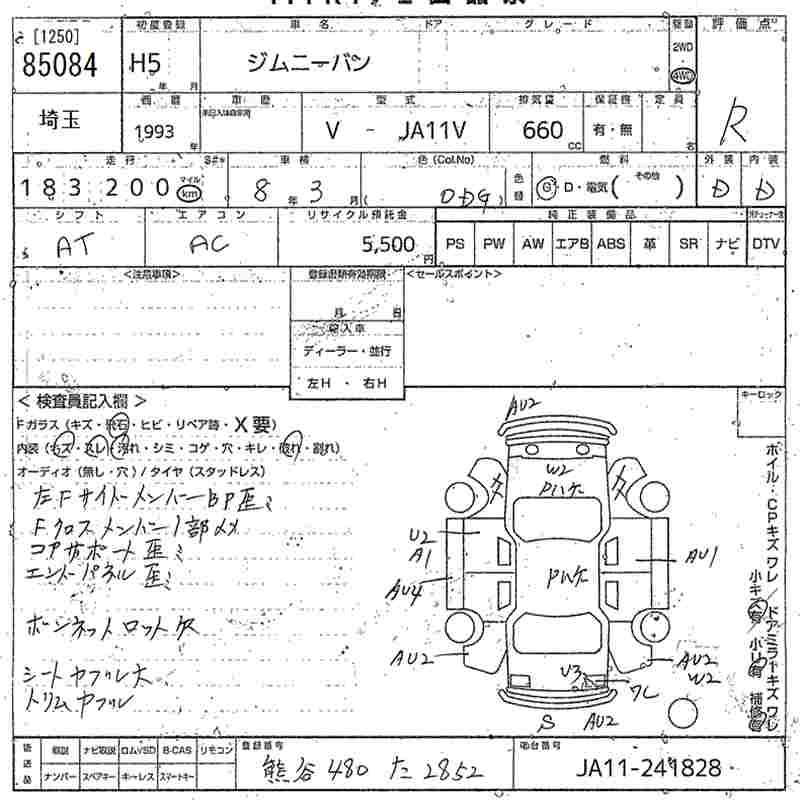 [1250]
85084
初度登録
H5
年 月
車名 ドア グレード
ジムニーバン
2WD
4WD
評価点
R
埼玉
西暦
1993
年
車歴
型式
V - JA11V
排気量
660
CC
保証書
有・無
定員
名
走行
183200
マイル
km
車検
8年3月
色(Col.No)
色替
燃料
G・D・電気( その他 )
外装
D
内装
D
シフト
AT
エアコン
AC
リサイクル預託金
5,500
円
純正装備品
PS PW AW エアB ABS 革 SR ナビ DTV
<注意事項>
登録書類有効期限
月 日
輸入車
ディーラー・並行
左H・右H
<セールスポイント>
<検査員記入欄>
Fガラス(キズ・飛石・ヒビ・リペア跡・X要)
内装(キズ・スレ・汚れ・シミ・コゲ・穴・キレ・破れ・割れ)
オーディオ(無し・穴)/タイヤ(スタッドレス)
左FサイドメンバーBP歪ミ
Fクロスメンバー1部メクレ
コアサポート歪ミ
エンドパネル歪ミ
ボンネットロット欠
シートヤブレ大
トリムヤブレ
キーロック
AU2
W2
Pハケ
U2
A1
AU4
Pハケ
AU1
AU2
U3
ワレ
AU2
W2
S AU2
ホイル・CPキズワレ/ドアミラーキズワレ
小キズ有/小凹有 補修有
後送品
取説 ナビ取説 ロム/SD B-CAS リモコン
ナンバー スペアキー キーレス スマートキー
登録番号
熊谷 480 た 2852
車台番号
JA11-241828